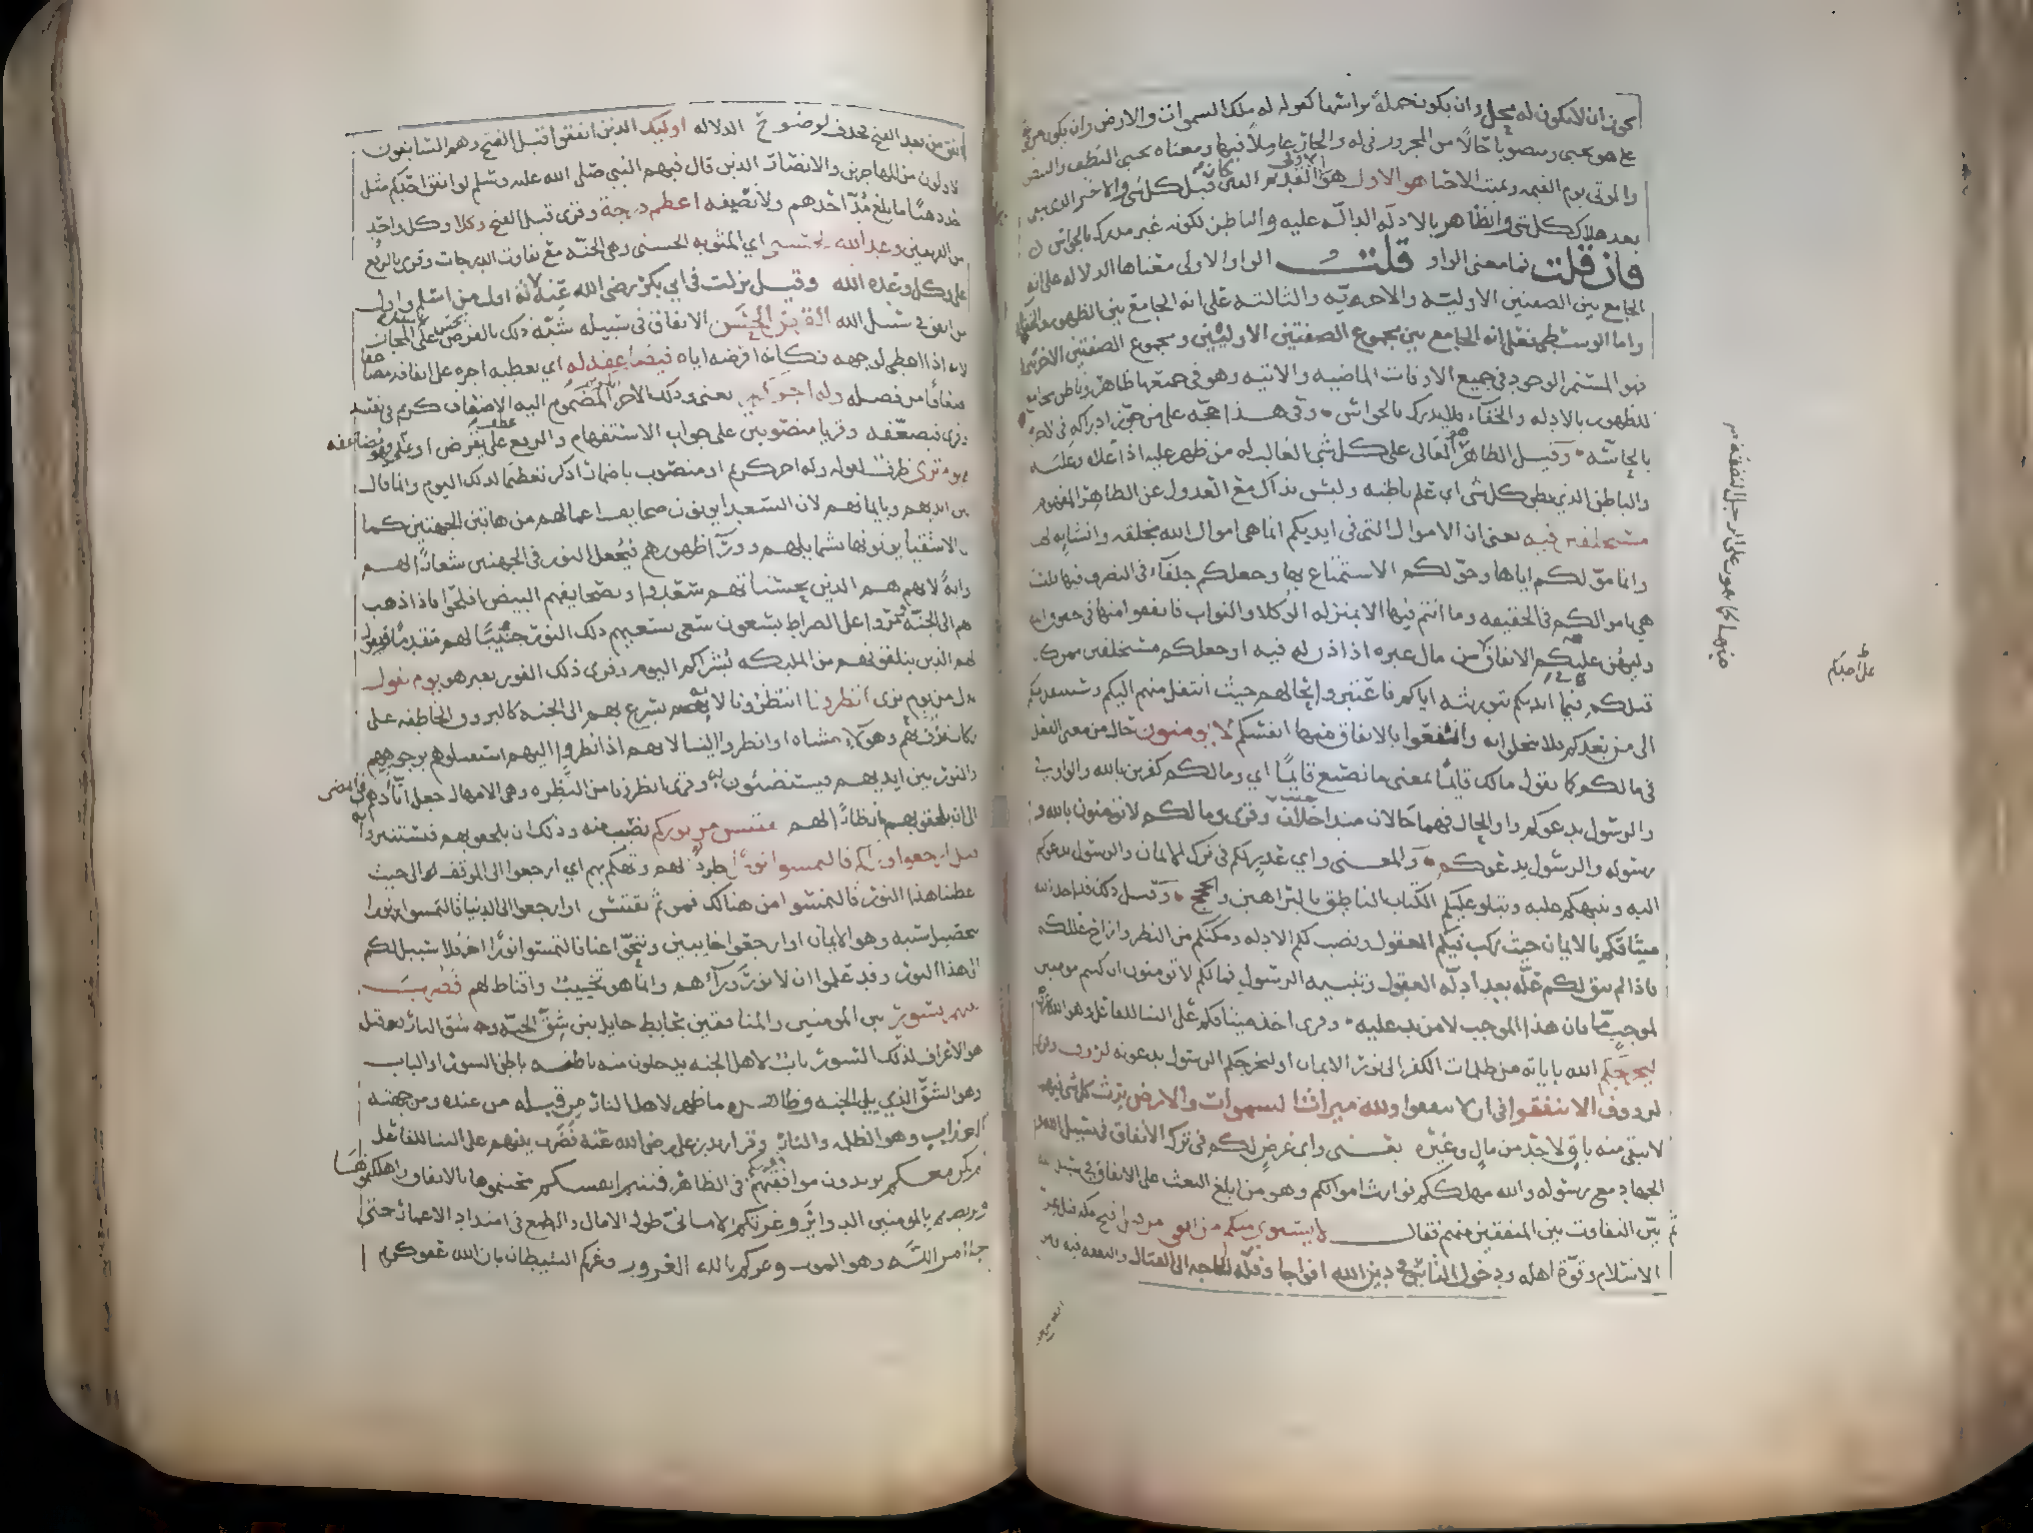 يجوز ان لا يكون له محل وان يكون جملة براسها كقوله له ملك السموات والارض وان يكون مرفوعا
على هو يحيى ومنصوبا حالا من المجرور في له والجار عاملا فيها ومعناه يحيى النطف والبيض
والموتى يوم القيمه ويميت الاحيا هو الاول هو القديم الذي كان قبل كل شي والاخر الذي يبقى
بعد هلاك كل شي والظاهر بالادله الداله عليه والباطن لكونه غير مدرك بالحواس
فان قلت فما معنى الواو قلت الواو الاولى معناها الدلاله على انه
الجامع بين الصفتين الاوليه والاخريه والثالثه على انه الجامع بين الظهور والخفا
واما الوسطى فعلى انه الجامع بين مجموع الصفتين الاوليين ومجموع الصفتين الاخريين
فهو المستمر الوجود في جميع الاوقات الماضيه والاتيه وهو في جميعها ظاهر وباطن جامع
للظهور بالادله والخفاء فلا يدرك بالحواس وفي هذا حجه على من جوز ادراكه في الاخره
بالحاسه وقيل الظاهر العالي على كل شي الغالب له من ظهر عليه اذا علاه وغلبه
والباطن الذي بطن كل شي اي علم باطنه وليس بذاك مع العدول عن الظاهر المفهوم
مستخلفين فيه يعني ان الاموال التي في ايديكم انما هي اموال الله بخلقه وانشايه لها
وانما مولكم اياها وخولكم الاستمتاع بها وجعلكم خلفاء في التصرف فيها فليست
هي باموالكم في الحقيقه وما انتم فيها الا بمنزله الوكلا والنواب فانفقوا منها في حقوق الله
وليهن عليكم الانفاق منها كما يهون على الرجل النفقه من مال غيره اذا اذن له فيه او جعلكم مستخلفين ممن كان
قبلكم فيما ايديكم بتوريثه اياكم فاعتبروا بحالهم حيث انتقل منهم اليكم وسينقل منكم
الى من بعدكم فلا تبخلوا به وانفعوا بالانفاق منها انفسكم لا تؤمنون حال من معنى الفعل
في ما لكم كما تقول مالك قايما بمعنى ما تصنع قايما اي وما لكم كفرين بالله والواو في
والرسول يدعوكم واو الحال فهما حالان متداخلتان وقرى وما لكم لا تؤمنون بالله و
رسوله والرسول يدعوكم والمعنى واي عذر لكم في ترك الايمان والرسول يدعوكم
اليه وينبهكم عليه ويتلو عليكم الكتاب الناطق بالبراهين والحجج وقبل ذلك قد اخذ الله
ميثاقكم بالايمان حيث ركب فيكم العقول ونصب لكم الادله ومكنكم من النظر وازاح عللكم
فاذا لم يبق لكم عله بعد ادله العقول وتنبيه الرسول فما لكم لا تومنون ان كنتم مومنين
لموجب ما فان هذا الموجب لا مزيد عليه وقرى اخذ ميثاقكم على البنا للفاعل وهو الله
ليخرجكم الله باياته من ظلمات الكفر الى نور الايمان او ليخرجكم الرسول بدعوته لرؤف وقرى
لروف الا تنفقوا في ان لا تنفقوا ولله ميراث السموات والارض يرث كل شي فيهما
لا يبقى منه باق لاحد من مال وغيره يعني واي غرض لكم في ترك الانفاق في سبيل الله و
الجهاد مع رسوله والله مهلككم فوارث اموالكم وهو من ابلغ البعث على الانفاق في سبيل الله
ثم بين التفاوت بين المنفقين منهم فقال لا يستوي منكم من انفق من قبل فتح مكه قبل عز
الاسلام وقوة اهله ودخول الناس في دين الله افواجا وقله الحاجه الى القتال والنفقه فيه ومن
انفق من بعد الفتح فحذف لوضوح الدلاله اوليك الذين انفقوا قبل الفتح وهم السابقون
الاولون من المهاجرين والانصار الذين قال فيهم النبي صلى الله عليه وسلم لو انفق احدكم مثل
احد ذهبا ما بلغ مد احدهم ولا نصيفه اعظم درجة وقرى قبل الفتح وكلا وكل واحد
من الفريقين وعد الله الحسنى اي المثوبه الحسنى وهي الجنه مع تفاوت الدرجات وقرى بالرفع
على وكل وعده الله وقيل نزلت في ابي بكر رضي الله عنه لانه اول من اسلم واول
من انفق في سبيل الله القرض الحسن الانفاق في سبيله شبه ذلك بالقرض على سبيل المجاز
لانه اذا اعطى لوجهه فكانه اقرضه اياه فيضاعفه له اي يعطيه اجره على انفاقه مضاعفا
اضعافا من فضله وله اجر كريم يعني وذلك الاجر المضموم اليه الاضعاف كريم في نفسه
وقرى فيضعفه وقريا منصوبين على جواب الاستفهام والرفع عطف على يقرض او على فهو يضاعفه
يوم ترى ظرف لقوله وله اجر كريم او منصوب باضمار اذكر تعظيما لذلك اليوم وانما قال
بين ايديهم وبايمانهم لان السعدا يوتون صحايف اعمالهم من هاتين الجهتين كما
ان الاشقيا يوتونها بشمايلهم وورآ ظهورهم فيجعل النور في الجهتين شعارا لهم
واية لانهم هم الذين بحسناتهم سعدوا وبصحايفهم البيض افلحوا فاذا ذهب
بهم الى الجنة ومروا على الصراط يسعون سعى بسعيهم ذلك النور جنيبا لهم متقدما ويقول
لهم الذين يتلقونهم من المليكه بشراكم اليوم وقرى ذلك الفوز بغير هو يوم يقول
بدل من يوم ترى انظرونا انتظرونا لانهم يسرع بهم الى الجنه كالبروق الخاطفه على
ركاب تزف بهم وهولاء مشاه او انظروا الينا لانهم اذا نظروا اليهم استقبلوهم بوجوههم
والنور بين ايديهم فيستضئون به وقرى انظرونا من النظره وهي الامهال جعل اتأدهم في المضي
الى ان يلحقوا بهم انظارا لهم نقتبس من نوركم نصب منه وذلك ان يلحقوا بهم فيستنيروا به
قيل ارجعوا وراكم فالتمسوا نورا طرد لهم وتهكم بهم اي ارجعوا الى الموقف الى حيث
اعطينا هذا النور فالتمسوا من هنالك فمن ثم يقتبس او ارجعوا الى الدنيا فالتمسوا نورا
بتحصيل سببه وهو الايمان او ارجعوا خايبين وتنحوا عنا فالتمسوا نورا اخر فلا سبيل لكم
الى هذا النور وقد علموا ان لا نور وراءهم وانما هو تخييب واقناط لهم فضرب
بينهم بسور بين المومنين والمنافقين بحايط حايل بين شق الجنه وشق النار وقيل
هو الاعراف لذلك السور باب لاهل الجنه يدخلون منه باطنه باطن السور او الباب
وهو الشق الذي يلي الجنه وظاهره ما ظهر لاهل النار من قبله من عنده ومن جهته
العذاب وهو الظلمه والنار وقرا زيد بن علي رضي الله عنه فضرب بينهم على البنا للفاعل
الم نكن معكم يريدون موافقتهم في الظاهر فتنتم انفسكم محنتموها بالنفاق واهلكتموها
وتربصتم بالمومنين الدواير وغرتكم الاماني طول الامال والطمع في امتداد الاعمار حتى
جاء امر الله وهو الموت وغركم بالله الغرور وغركم الشيطان بان الله عفو كريم